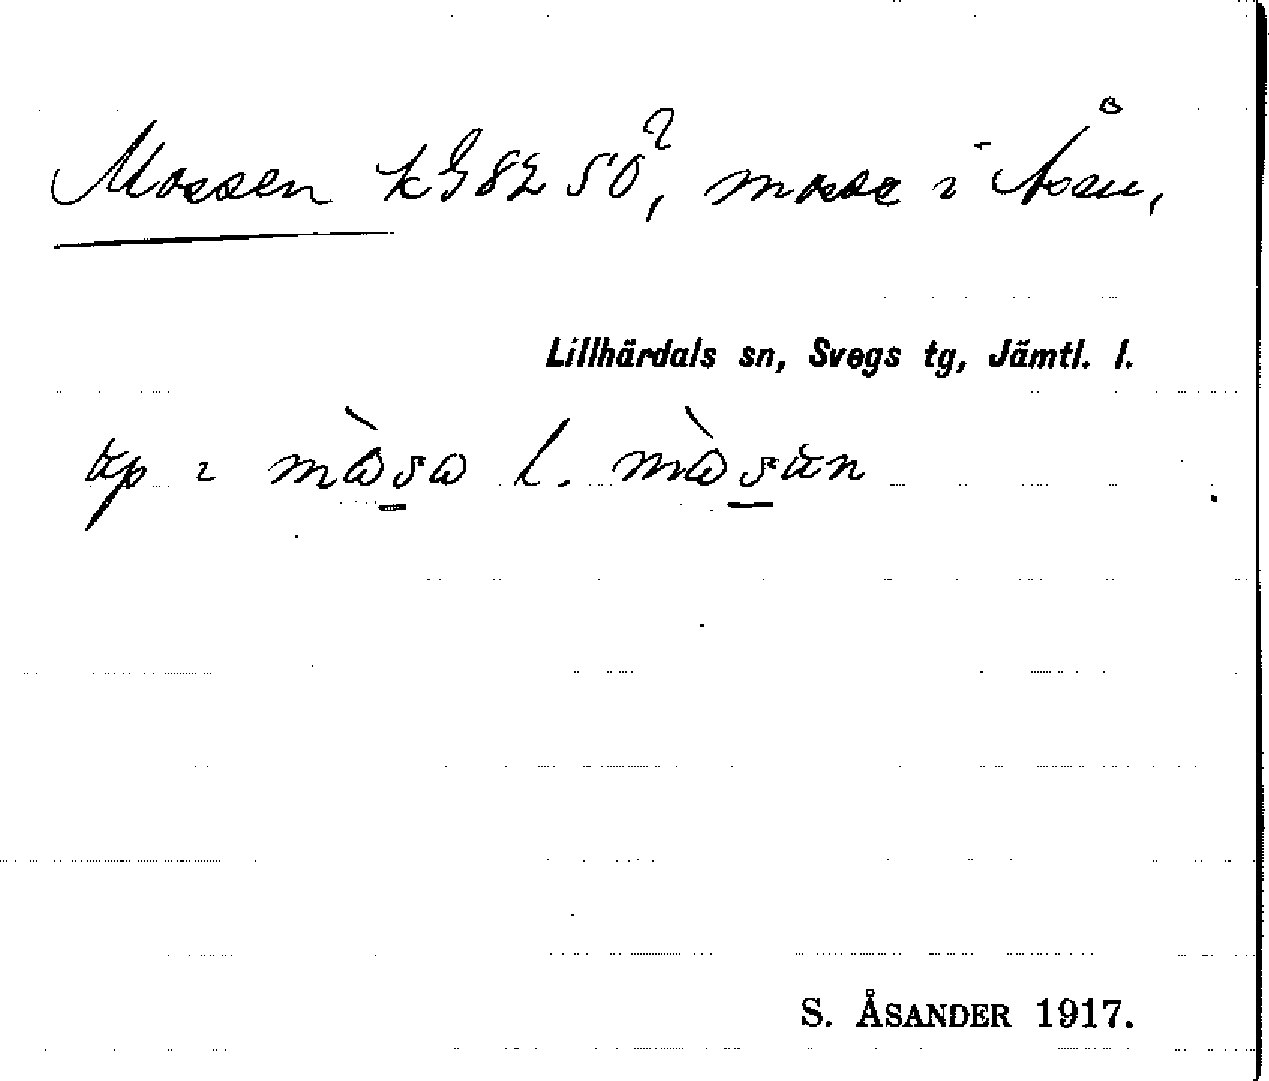 Mossen k G 82 SO?, mosse i Åsen,
Lillhärdals sn, Svegs tg, Jämtl. l.
i mɷ̀sɷ l. mɷ̀sün
S. ÅSANDER 1917.